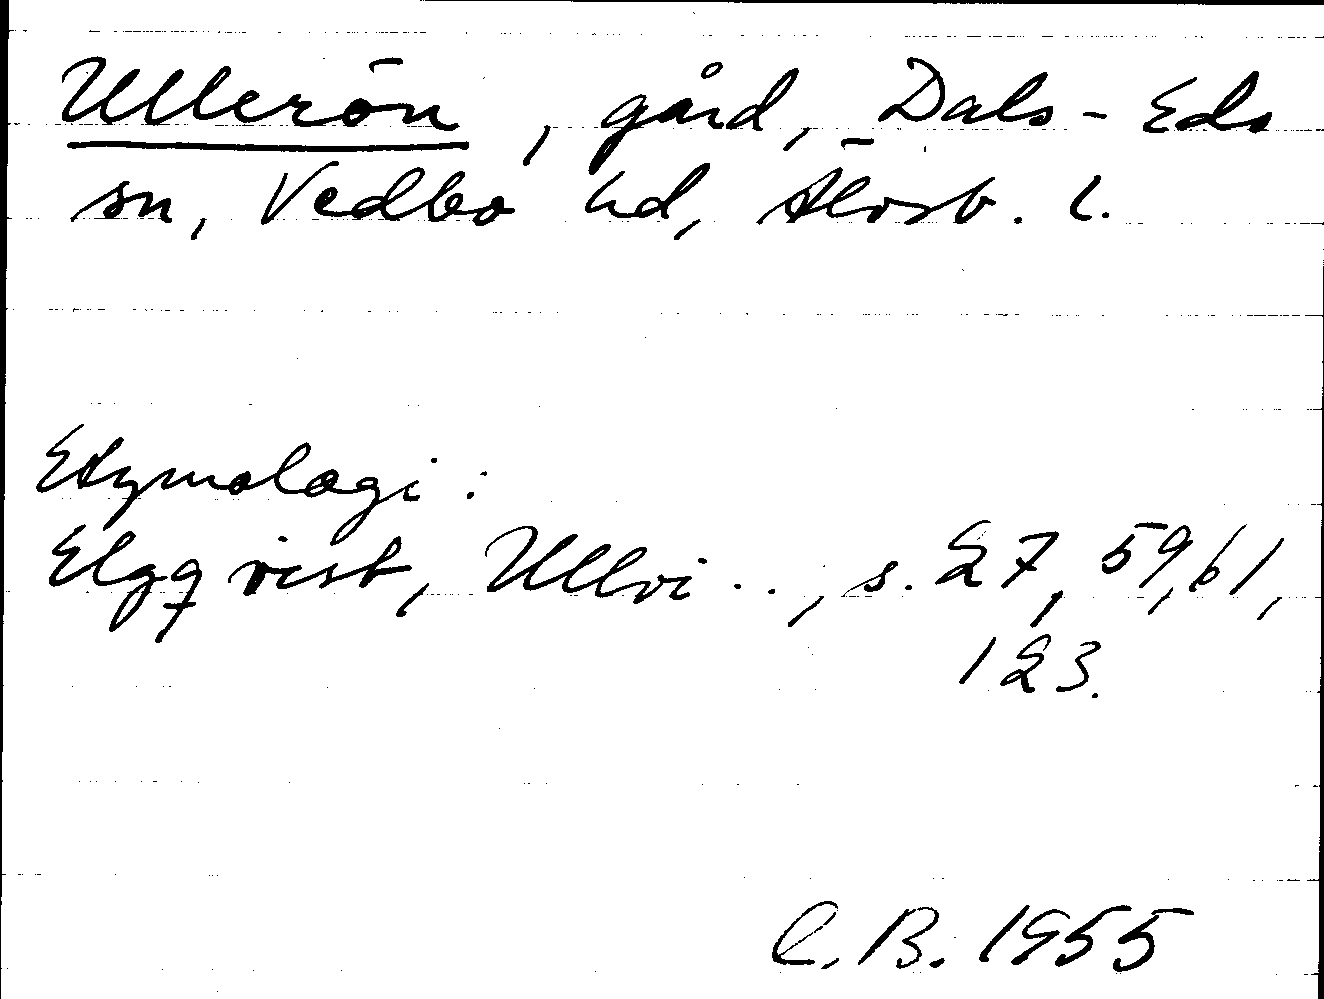 Ullerön, gård, Dals-Eds
sn, Vedbo hd, Älvsb. l.
Etymologi:
Elgqvist, Ullvi .., s. 27, 59, 61,
123.
C.B. 1955